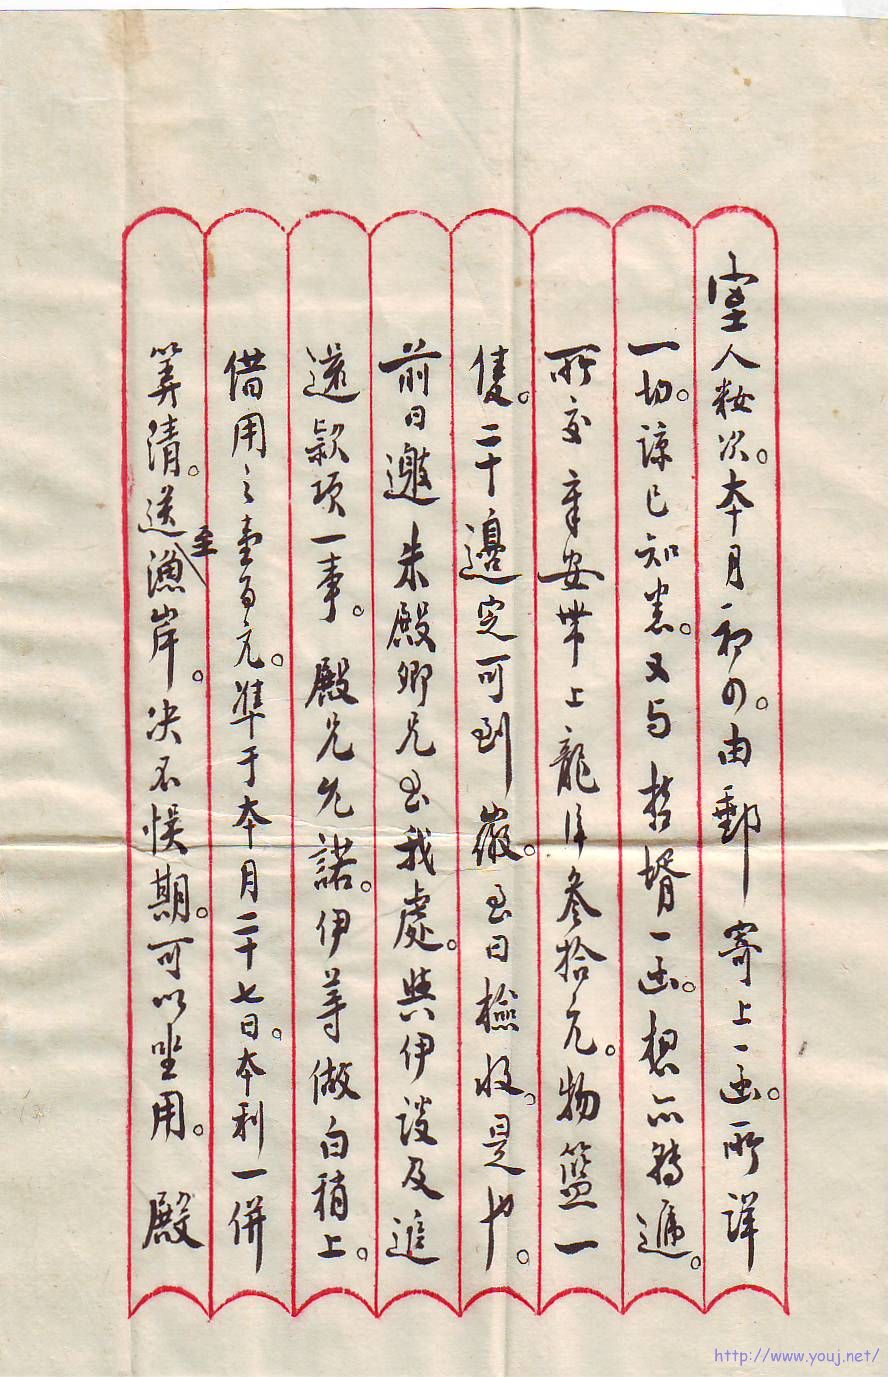 室人妝次。本月初四。由郵寄上一函。所詳
一切。諒已知悉。又与哲婿一函。想亦轉遞。
所交章安带上龍洋叁拾元。物籃一
隻。二十邊定可到嶶。至日檢收。是也。
前日邀朱殿卿兄至我處。與伊談及進
還款項一事。殿兄允諾。伊等做白稍上。
借用之壹百元。準于本月二十七日。本利一併
筭清。送至漁岸。决不悮期。可以坐用。殿
http://www.youj.net/